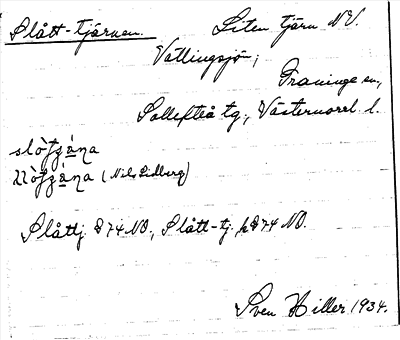 Slått-tjärnen. Liten tjärn N.V.
Vattingsjön,
Graninge sn,
Sollefteå tg., Västernorrl. l.
(Nils Lidberg)
Slåttj. § 74 NO., Slått-tj. k§ 74 NO.
Sven Hiller 1934.